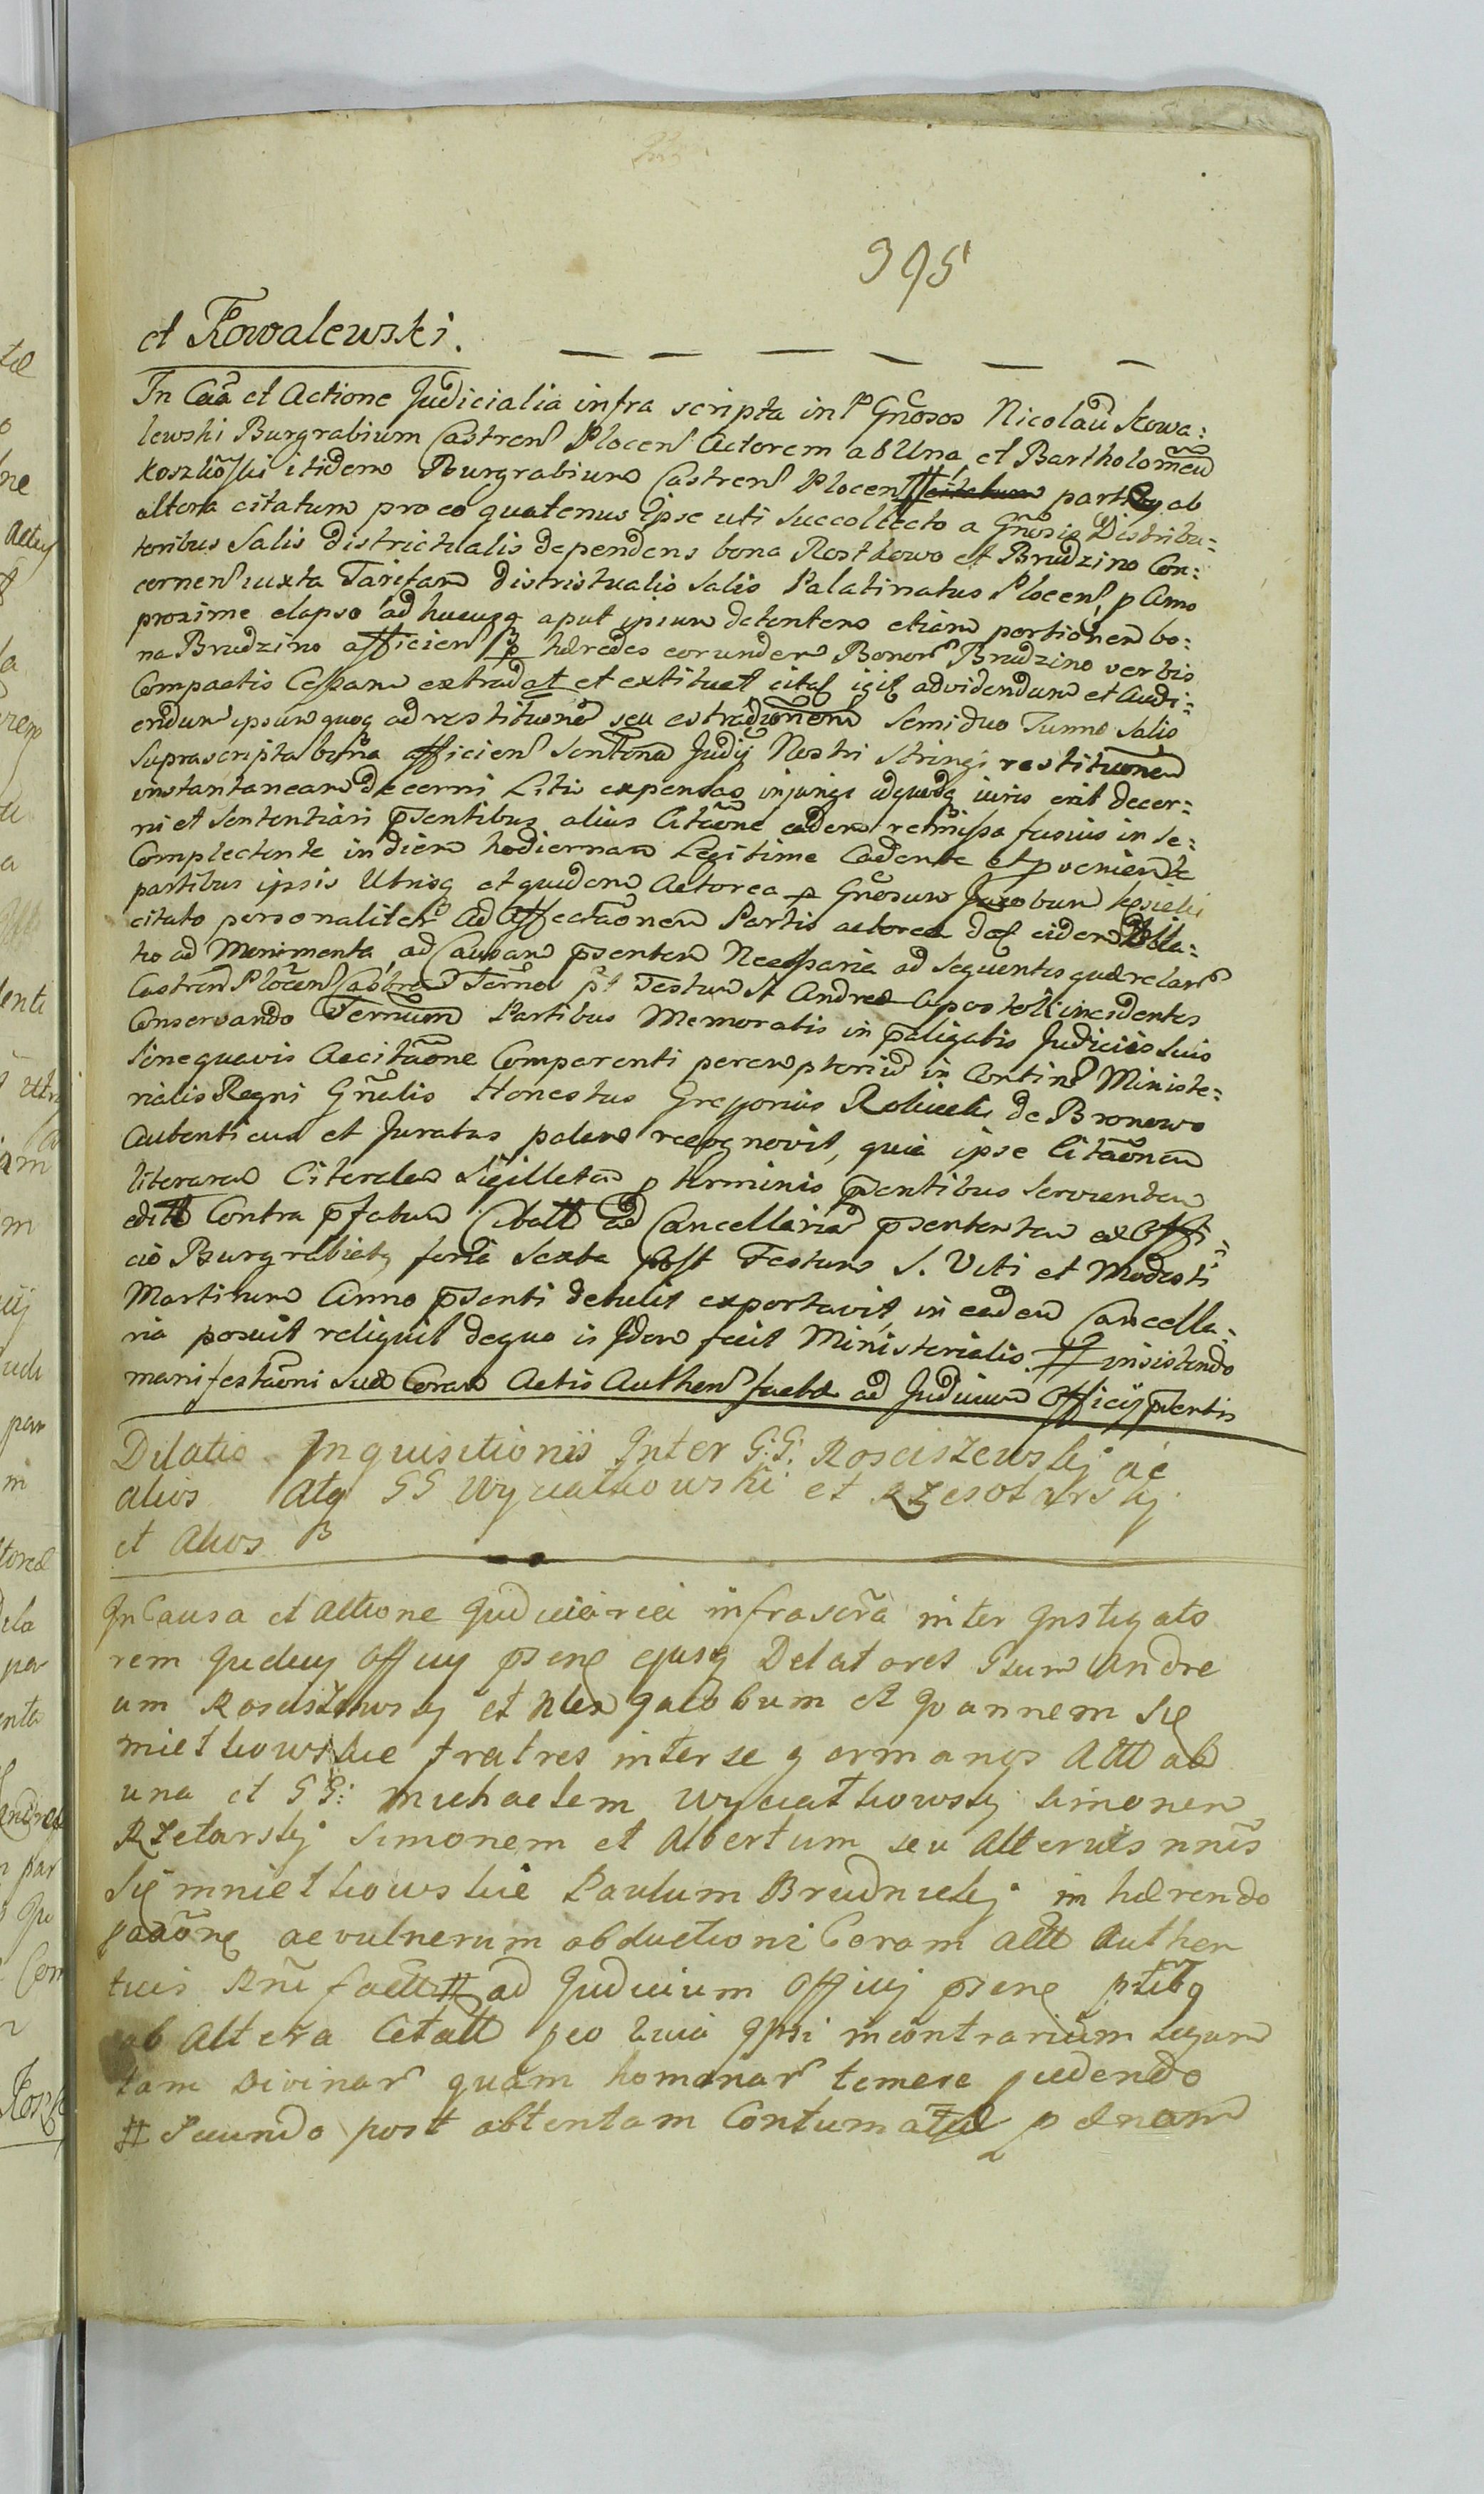 395
et Kowalewski.
In Caã et Actione Judicialia infra scripta int Gnosos Nicolaũ Kowa:
lewski Burgrabium Castren Plocen Actorem ab Una et Bartholomeũ
itidem Burgrabium Castren Plocen partꝫ ab
altera citatum pro eo quatenus ipse uti succollecto a Gnosis Distribu:
toribus Salis districtualis dependens bona Rostkowo et Brudzino Con:
cernen iuxta Tarifam districtualis Salis Palatinatus Plocen, p Anno
proxime elapso ad hucusq aput ipsum detentem etiam portionem bo:
na Brudzino afficien p hæredes eorundem Bonor Brudzino verbis
Compactis Cessam extradat et extituet citat igit advidendum et Audi:
endum ipsum quoq ad restitutionẽ seu extraditionem Semiduo Tunno Salis
suprascripta bona afficien Sentona Judij Nostri Stringi restitutionem
instantaneam decerni Litis expensas injungi idquodq iuris erit decer:
ni et Sententiari p̃sentibus alius Citaõne eadem remissa fusius in se:
Complectente in diem hodiernam Legitime Cadente et pveniente
partibus ipsis Utrisq et quidem Actorea p Gnosum Jacobum
citato personaliter Ad Affectaõnem Partis actorea dat eidem Dila:
tio ad Munimenta ad Causam p̃sentem Necessaria ad sequentes quærelar
Castren Plocen Termo pt Festum St Andreæ Apostoli incidentes
Conservando Terminum Partibus Memoratis in p̃aligatis Judiciis suis
sine quavis Accitaõne Comparenti peremptoriũ in Contine Ministe:
rialis Regni Gñalis Honestus Gregorius Robucki de Bronowo
Autenticus et Juratus palam recognovit, quia ipse Citaõnem
literaram Citeralem Sigillatam p terminis p̃sentibus servientem
edit Contra p̃fatum Citatt ad Cancellariã p̃sentem ex Offi:
cio Burgrabietꝫ feria Sexta post Festum S. Viti et Modesti
Martirum Anno p̃senti detulit exportavit, in eadem Cancella:
ria posuit reliquit dequo is Idem fecit Ministerialis. # insistendo
manifestaõni suæ Coram Actis Authen factæ ad Judicium Officij p̃sentis
Dilatio Inquisitionis Inter G:G: Rosciszewskij ac
alios atq GG Wyciatkowski et Rzesotarskij
et Alios
In Causa et Actione Judiciaria infrascrã inter Instigato
rem Judicij Officij p̃sens ejusq Delatores Gsum Andre
am Rosciszewskij et Nles Jacobum et Joannem Sie
mietkowskie fratres inter se germanos Actt ab
una et GG: Michaelem Wyciatkowskij Simonem
Rzetarskij Simonem et Albertum seu Alteruis nnis
Siemnietkowskie Paulum Brudnickij inhærendo
ac vulnerum obductioni Coram Actt Authen
ticis factt # ad Judicium Officij p̃sens
ab Altera Citatt peo quia Ipsi incontrarium Legum
tam Divinar quam homanar temere pedendo
# Secundo post obtentam Contumatiæ pænam